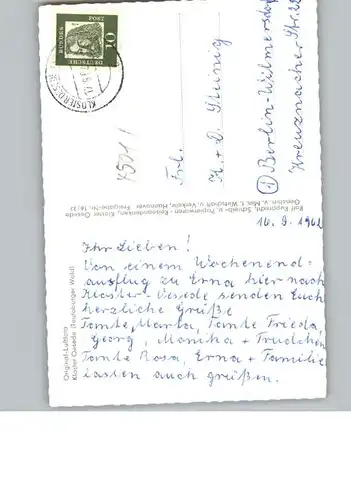 Original-Luftfoto
Kloster Oesede (Teutoburger Wald)
16. 9. 1962
Ihr Lieben!
Von einem Wochenend=
ausflug zu Erna hier nach
Kloster-Oesede senden Euch
herzliche Grüße
Tante Marta, Tante Frieda,
Georg, Monika + Trudchen
Tante Rosa, Erna + Familie
lassen auch grüßen.
Rolf Rupprecht, Schreib- u. Papierwaren - Reiseandenken, Kloster Oesede
Gesch. v. Min. f. Wirtschaft u. Verkehr, Hannover Freigabe-Nr. 16/33
Frl.
K. + D. Gleinig
1 Berlin-Wilmersdorf
Kreuznacher Str. 22
DEUTSCHE
BUNDESPOST
10
KLOSTER OESEDE